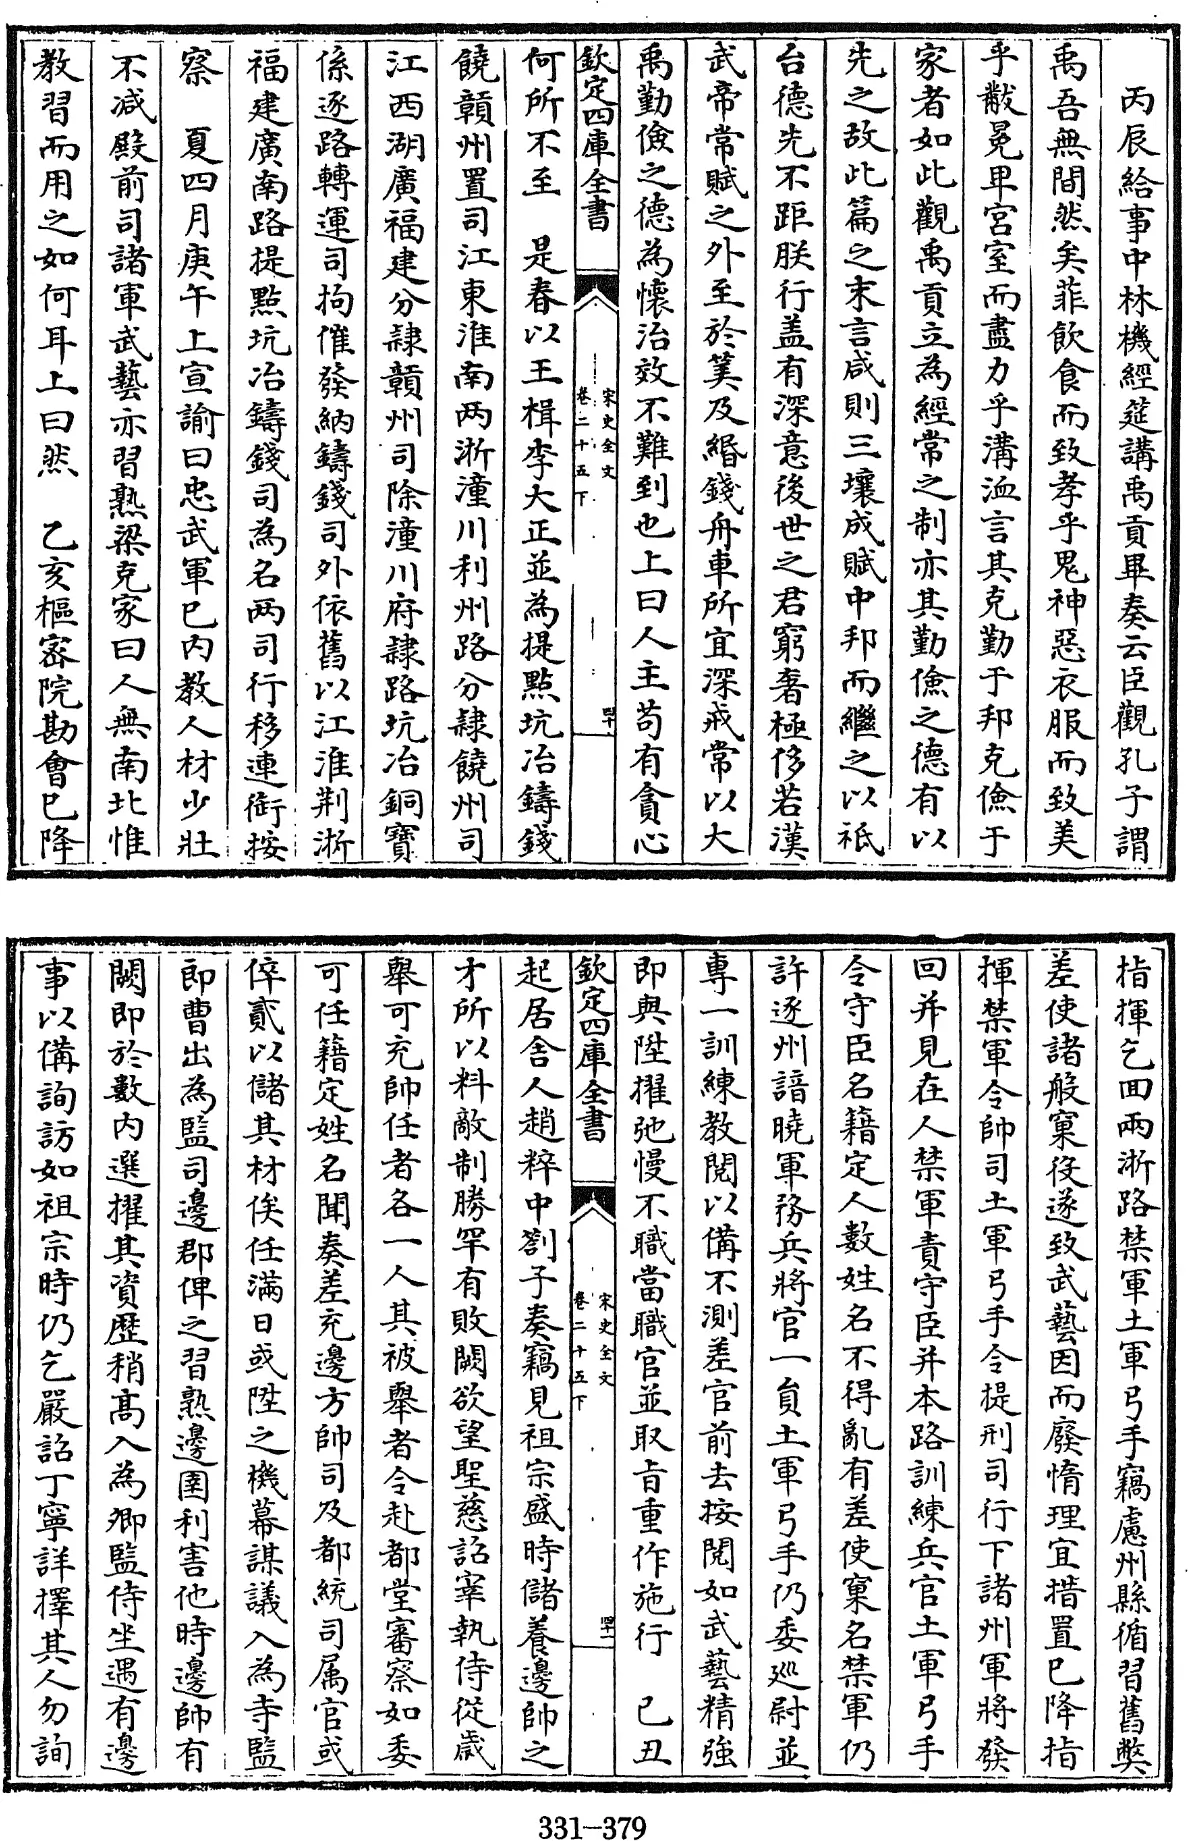 丙辰給事中林機經筵講禹貢畢奏云臣觀孔子謂
禹吾無間然矣菲飲食而致孝乎鬼神惡衣服而致美
乎黻冕卑宮室而盡力乎溝洫言其克勤于邦克儉于
家者如此觀禹貢立為經常之制亦其勤儉之德有以
先之故此篇之末言咸則三壤成賦中邦而繼之以祇
台德先不距朕行盖有深意後世之君窮奢極侈若漢
武帝常賦之外至於筭及緡錢舟車所宜深戒常以大
禹勤儉之德為懷治效不難到也上曰人主苟有貪心
欽定四庫全書
宋史全文
卷二十五下
四十
何所不至　是春以王楫李大正並為提點坑冶鑄錢
饒贛州置司江東淮南兩浙潼川利州路分隷饒州司
江西湖廣福建分隷贛州司除潼川府隷路坑冶銅寶
係逐路轉運司拘催發納鑄錢司外依舊以江淮荆浙
福建廣南路提點坑冶鑄錢司為名兩司行移連銜按
察　夏四月庚午上宣諭曰忠武軍已内教人材少壯
不减殿前司諸軍武藝亦習熟梁克家曰人無南北惟
教習而用之如何耳上曰然　乙亥樞密院勘會已降
指揮乞回兩浙路禁軍土軍弓手竊慮州縣循習舊弊
差使諸般窠役遂致武藝因而廢惰理宜措置已降指
揮禁軍令帥司土軍弓手令提刑司行下諸州軍將發
回并見在人禁軍責守臣并本路訓練兵官土軍弓手
令守臣名籍定人數姓名不得亂有差使窠名禁軍仍
許逐州諳曉軍務兵將官一員土軍弓手仍委廵尉並
專一訓練教閲以備不測差官前去按閲如武藝精強
即與陞擢弛慢不職當職官並取旨重作施行　己丑
欽定四庫全書
宋史全文
卷二十五下
四十一
起居舍人趙粹中劄子奏竊見祖宗盛時儲養邊帥之
才所以料敵制勝罕有敗闕欲望聖慈詔宰執侍從歲
舉可充帥任者各一人其被舉者令赴都堂審察如委
可任籍定姓名聞奏差充邊方帥司及都統司属官或
倅貳以儲其材俟任滿日或陞之機幕謀議入為寺監
即曹出為監司邊郡俾之習熟邊圉利害他時邊帥有
闕即於數内選擢其資歷稍髙入為卿監侍坐遇有邊
事以備詢訪如祖宗時仍乞嚴詔丁寧詳擇其人勿詢
331—379